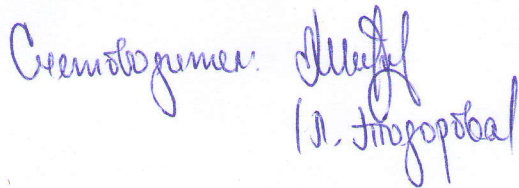 Счетоводител:
(Л. Тодорова)